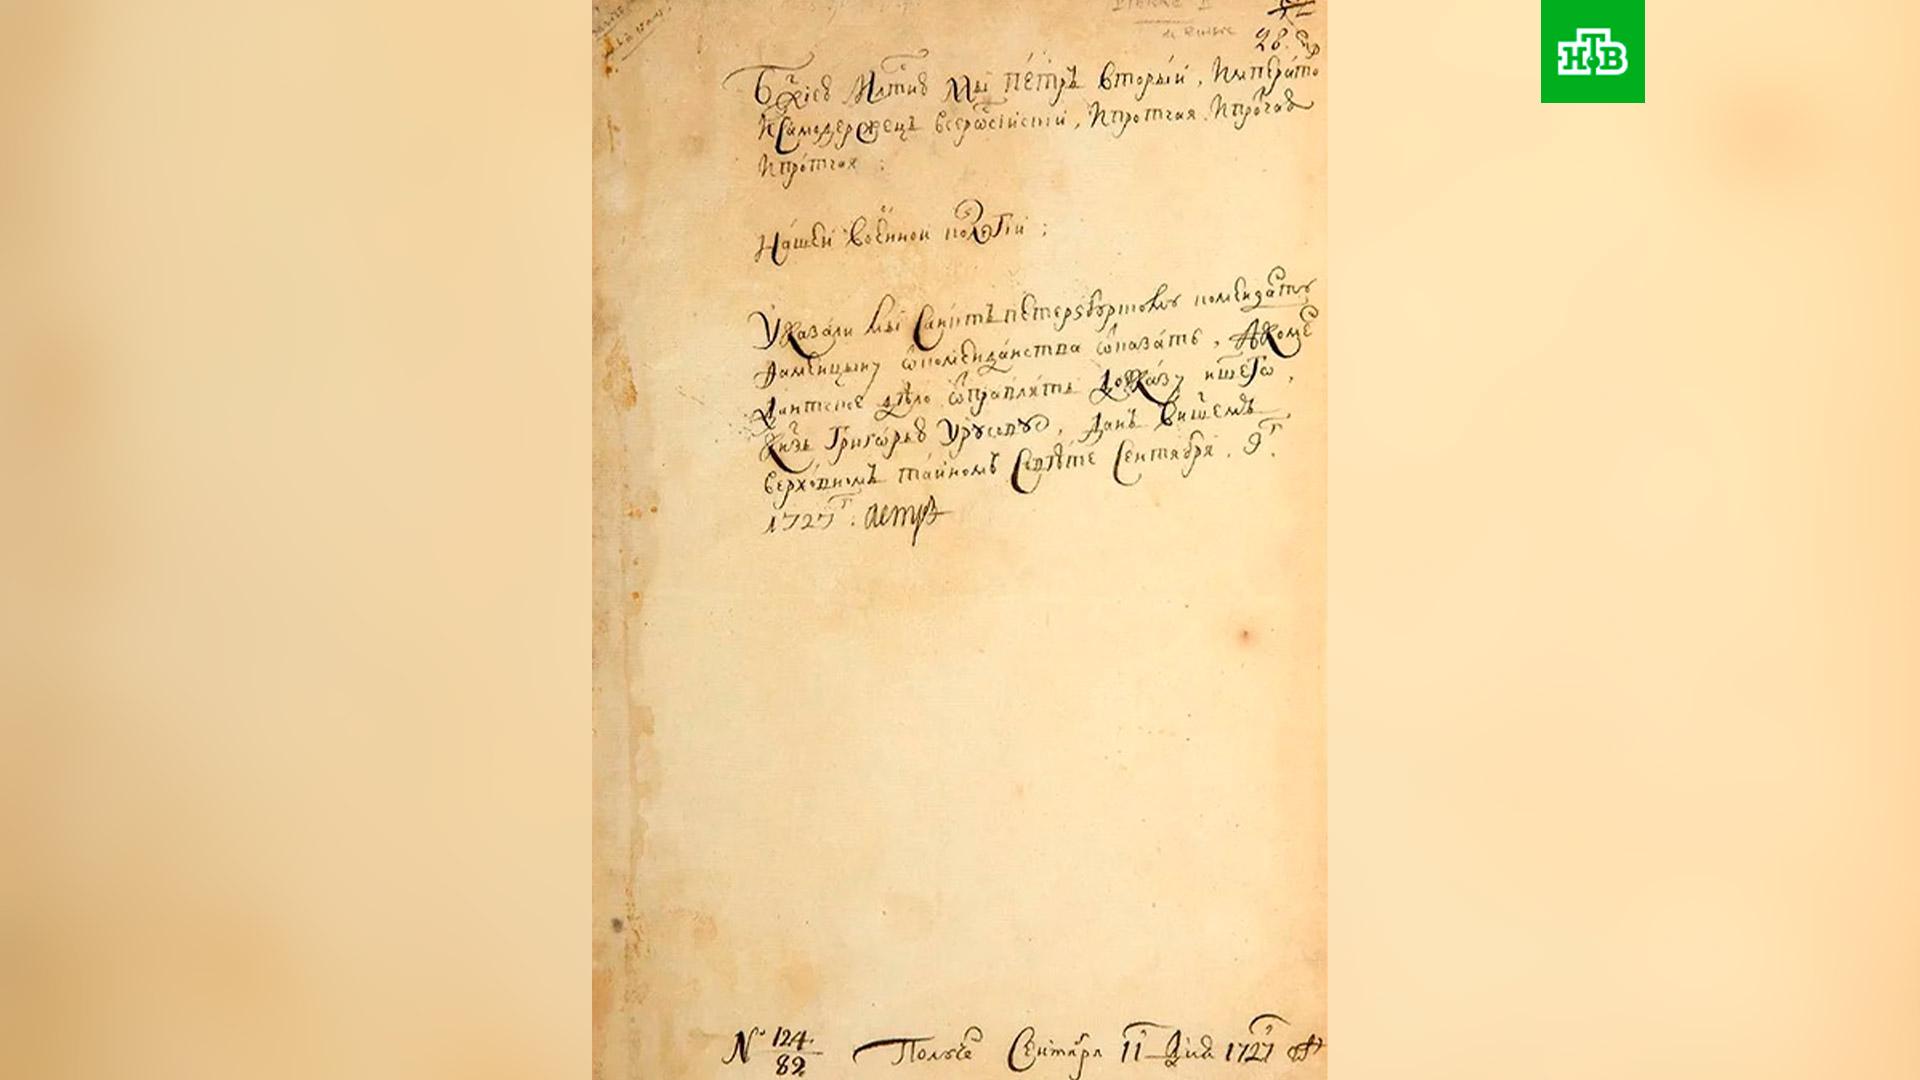 НТВ
PIERRE II
de Russie
28
Бжиею Млтию Мы Петръ Вторыи, Императо
И Самодержецъ Всеросiискiи, И протчая, И прочая
И протчая :
Нашеи Военнои колегiи ;
Указали мы Санктъ петерзбургскому коменданту
Фаминцыну ѿ комендантства ѿказать, А коме
дантское дѣло ѿправлять до указу ншего
Кнзь Григорью Урусову, Данъ в ншемъ
верховномъ таиномъ Совѣте Сентября 9г
1727г: Петръ
№ 124
82
Получе Сентября 11 дня 1727